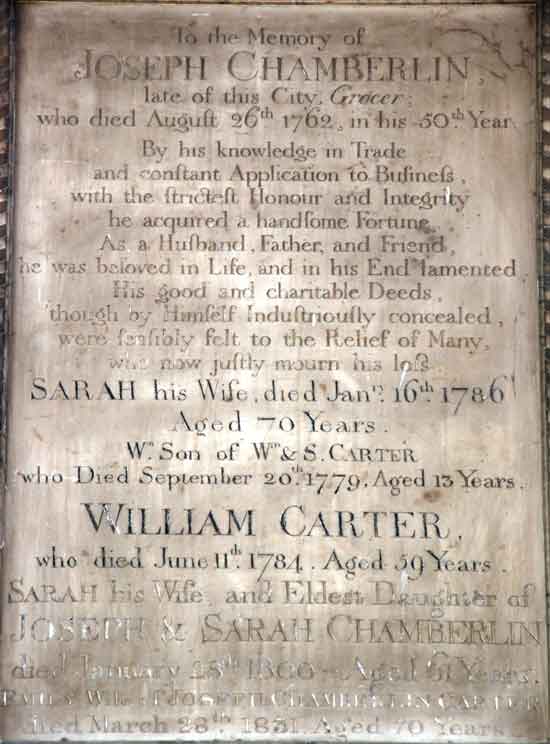 To the Memory of
JOSEPH CHAMBERLIN,
late of this City, Grocer;
who died Auguſt 26th 1762, in his 50th Year.
By his knowledge in Trade
and conſtant Application to Buſineſs,
with the ſtricteſt Honour and Integrity
he acquired a handſome Fortune.
As a Huſband, Father, and Friend,
he was beloved in Life, and in his End lamented.
His good and charitable Deeds,
though by Himſelf Induſtriouſly concealed,
were ſenſibly felt to the Relief of Many,
who now juſtly mourn his loſs
SARAH his Wife, died Janry. 16th. 1786
Aged 70 Years.
Wm. Son of Wm. & S. CARTER
who Died September 20th. 1779. Aged 13 Years.
WILLIAM CARTER,
who died June 11th. 1784. Aged 59 Years.
SARAH his Wife, and Eldest Daughter of
JOSEPH & SARAH CHAMBERLIN
died January 1800 Aged 61 Years.
Wife of JOSEPH CHAMBERLIN CARTER
died March 28th. 1831. Aged 70 Years